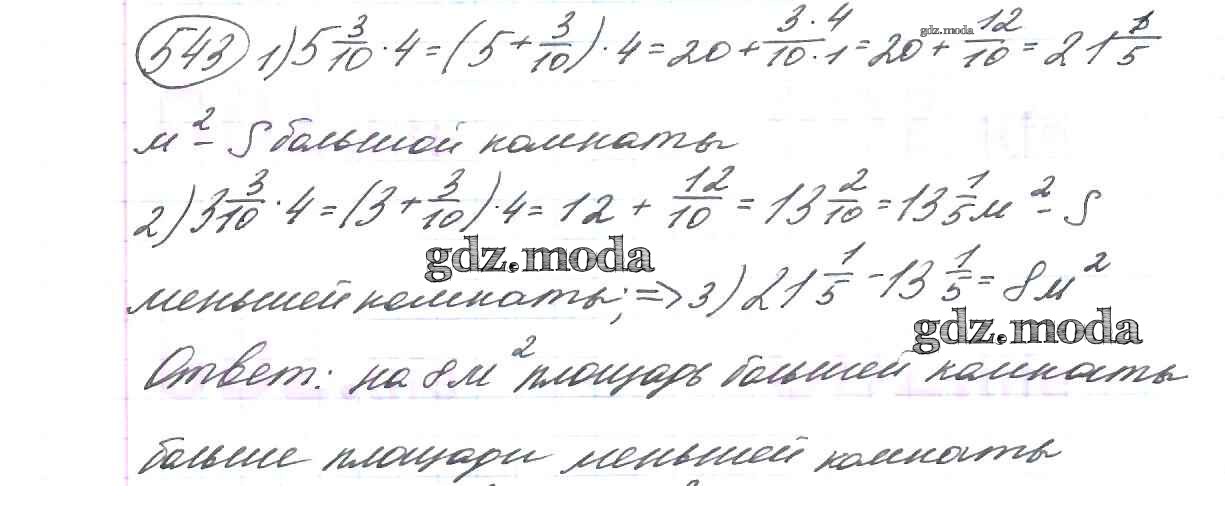 543 1) 5 3/10 · 4 = (5 + 3/10) · 4 = 20 + 3·4/10·1 = 20 + 12/10 = 21 1/5
gdz.moda
м² - S большой комнаты
2) 3 3/10 · 4 = (3 + 3/10) · 4 = 12 + 12/10 = 13 2/10 = 13 1/5 м² - S
gdz.moda
меньшей комнаты; => 3) 21 1/5 - 13 1/5 = 8 м²
gdz.moda
Ответ: на 8 м² площадь большей комнаты
больше площади меньшей комнаты